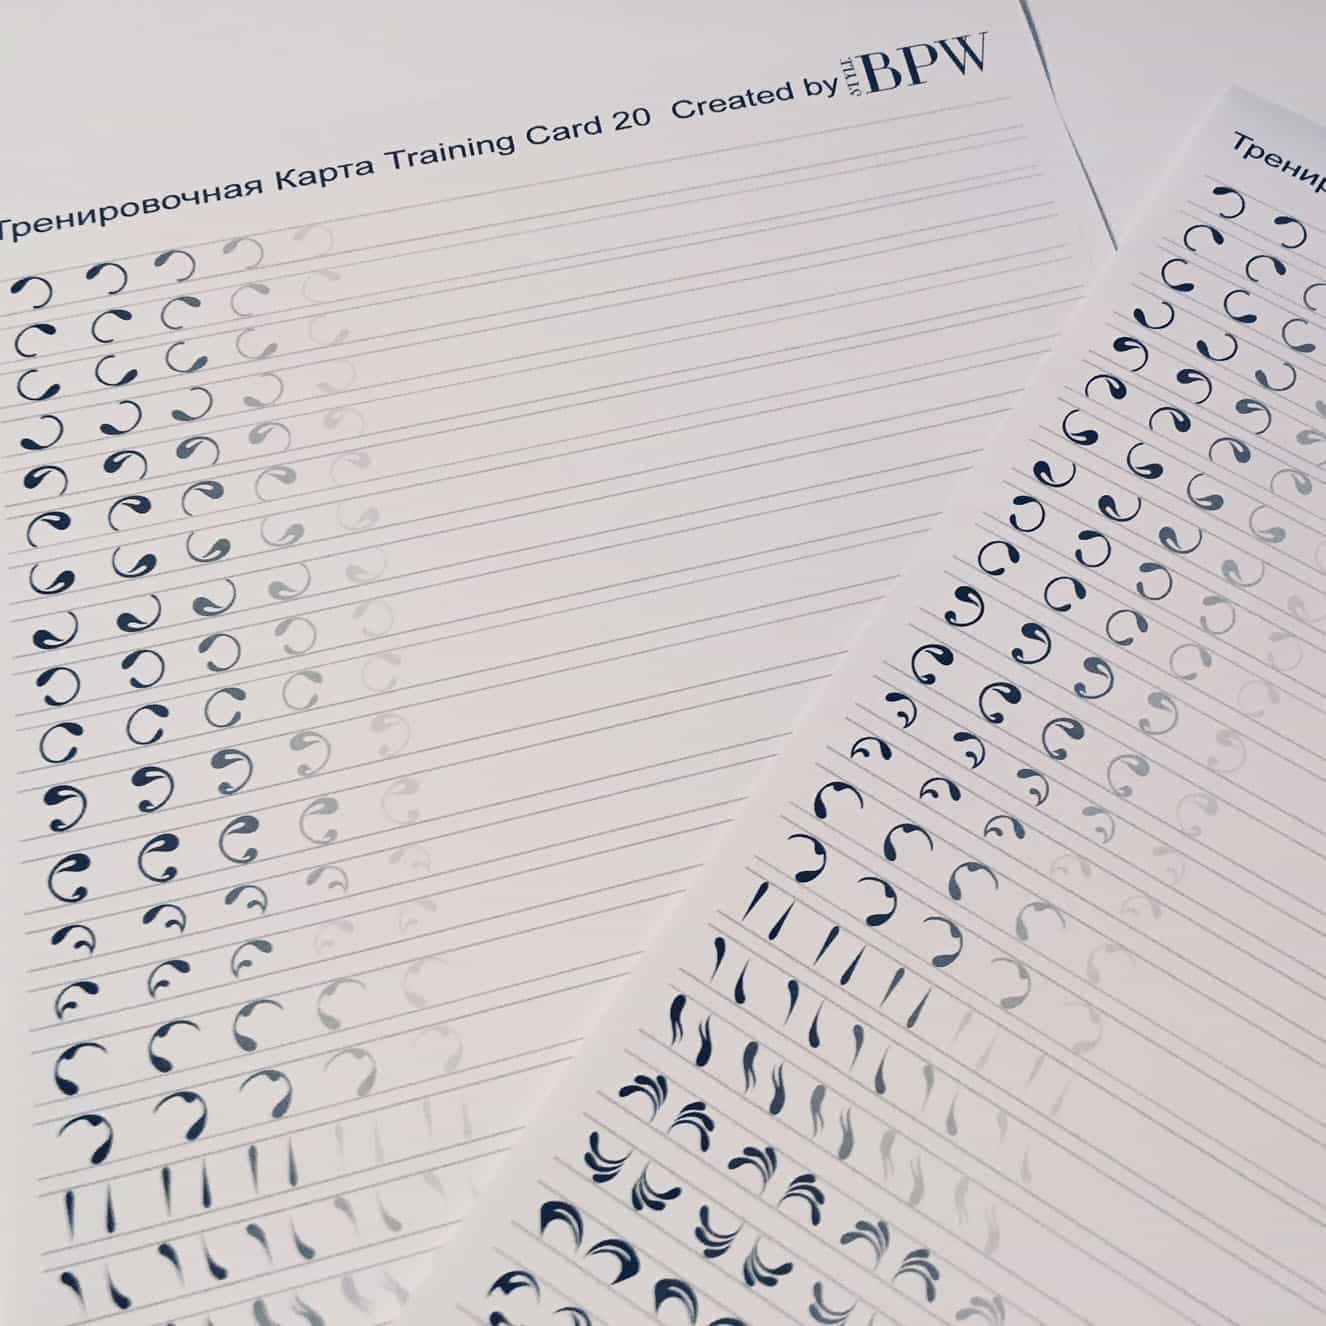 Тренировочная Карта Training Card 20 Created by STYL BPW